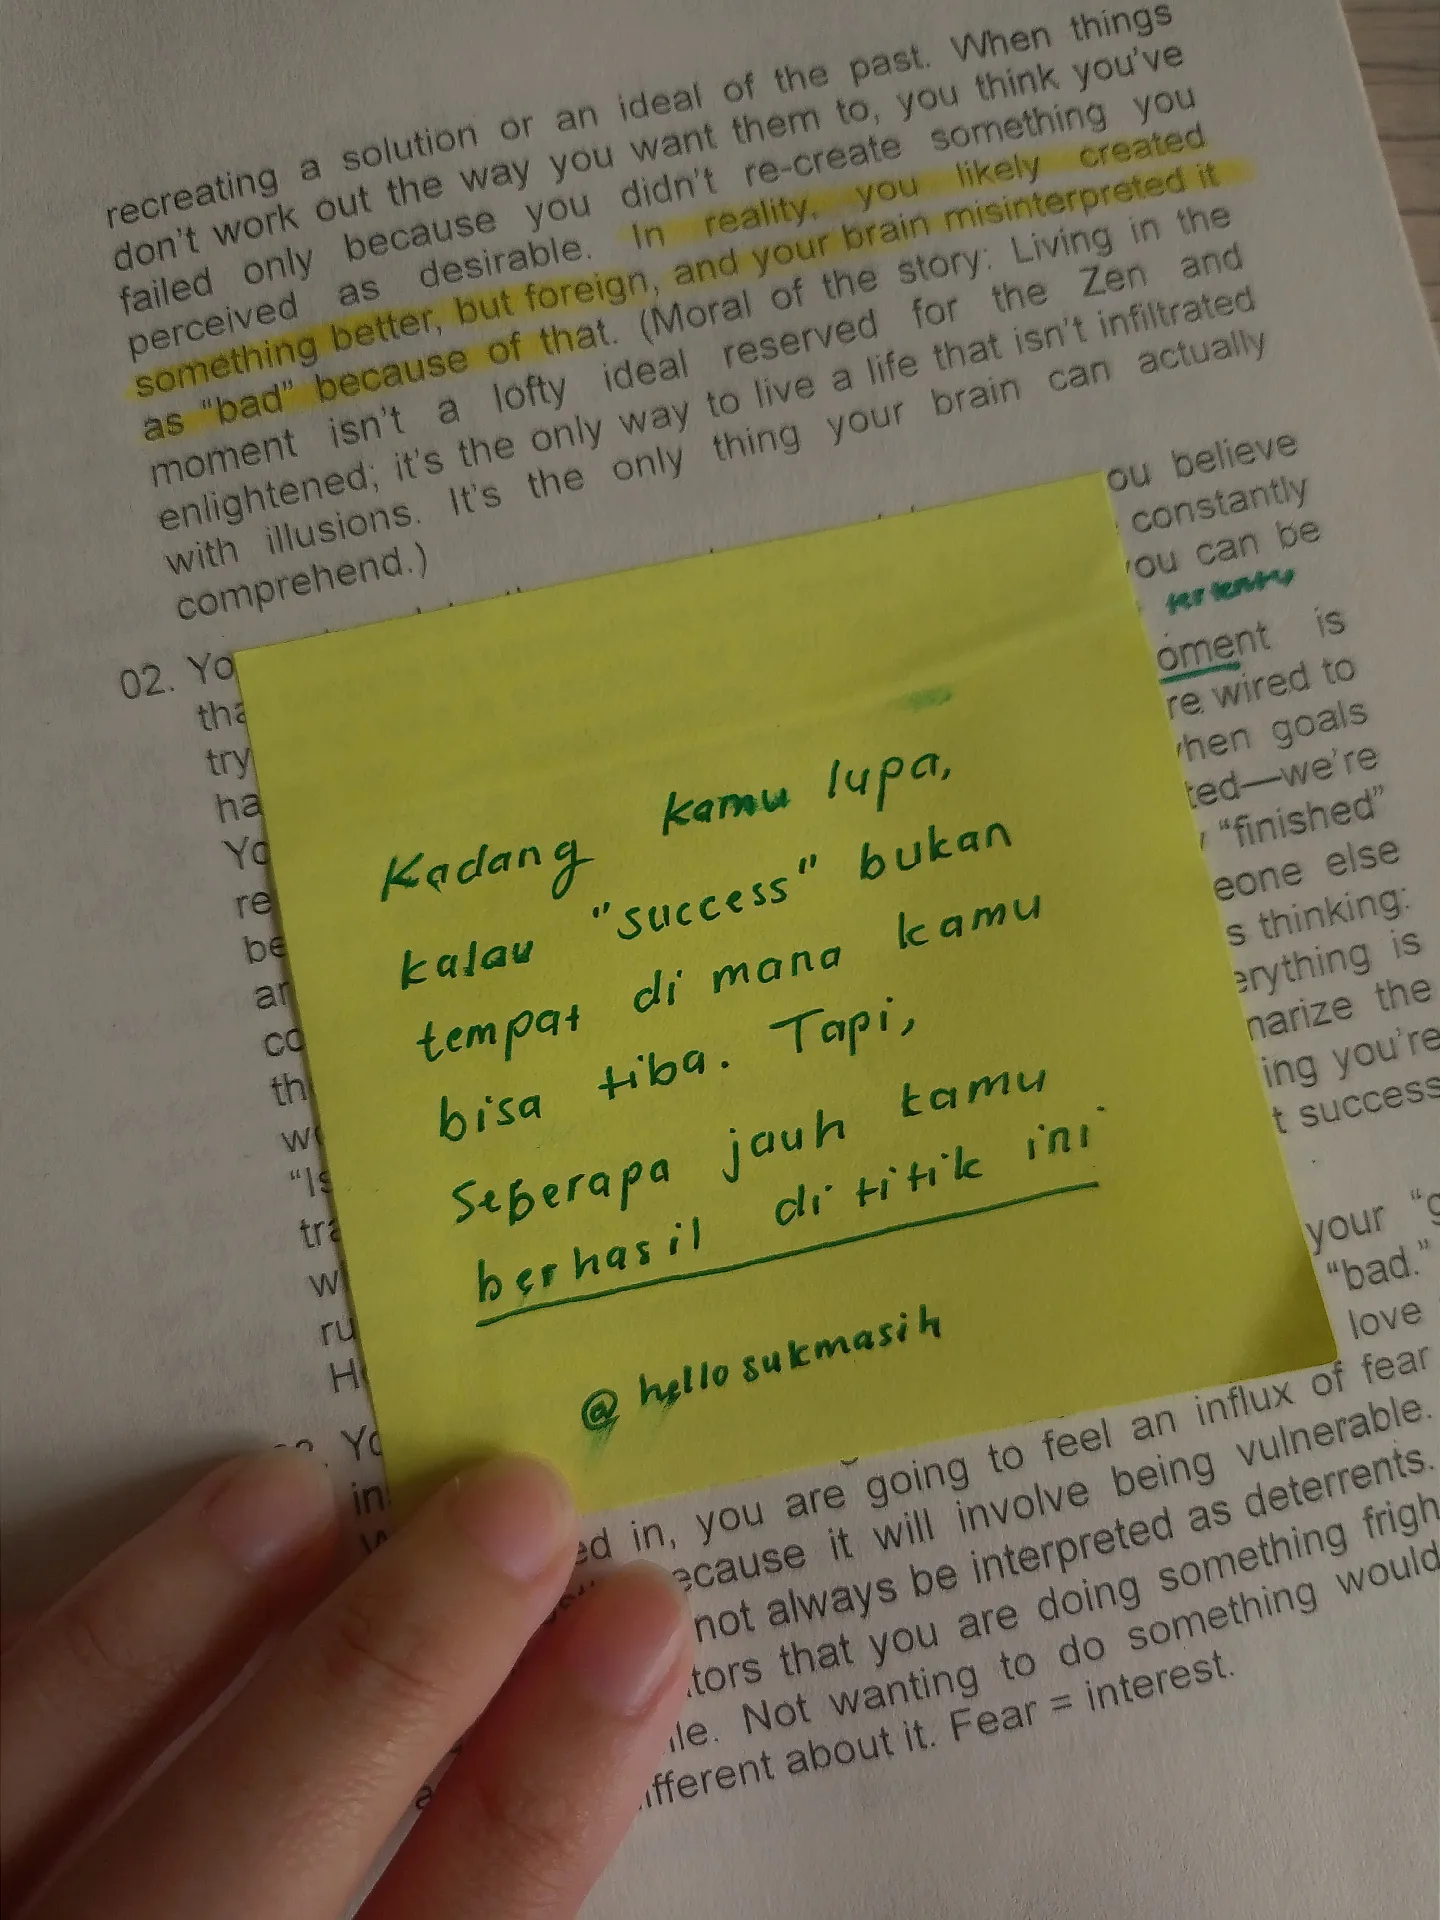 recreating a solution or an ideal of the past. When things
don't work out the way you want them to, you think you've
failed only because you didn't re-create something you
perceived as desirable. In reality, you likely created
something better, but foreign, and your brain misinterpreted it
as "bad" because of that. (Moral of the story: Living in the
moment isn't a lofty ideal reserved for the Zen and
enlightened; it's the only way to live a life that isn't infiltrated
with illusions. It's the only thing your brain can actually
comprehend.)
02.
believe
constantly
can be
tertentu
is
wired to
goals
we're
"finished"
else
thinking:
is
the
you're
success
your
"bad."
love
Kadang kamu lupa,
kalau "success" bukan
tempat di mana kamu
bisa tiba. Tapi,
seberapa jauh kamu
berhasil di titik ini
@hellosukmasih
in, you are going to feel an influx of fear
because it will involve being vulnerable.
not always be interpreted as deterrents.
that you are doing something frigh
Not wanting to do something would
about it. Fear = interest.